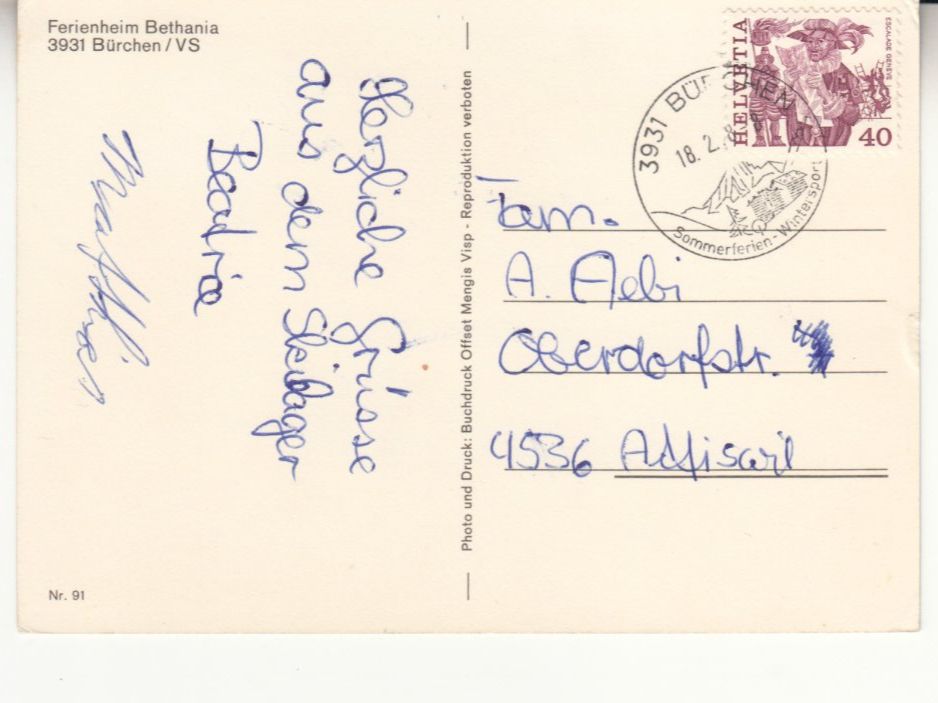 Ferienheim Bethania
3931 Bürchen / VS
Herzliche Grüsse
aus dem Skilager
Beatrice
Matthias
Nr. 91
Photo und Druck: Buchdruck Offset Mengis Visp - Reproduktion verboten
HELVETIA
ESCALADE GENÈVE
40
3931 BÜRCHEN
18. 2. 8
Sommerferien - Wintersport
Fam.
A. Aebi
Oberdorfstr.
4536 Attiswil